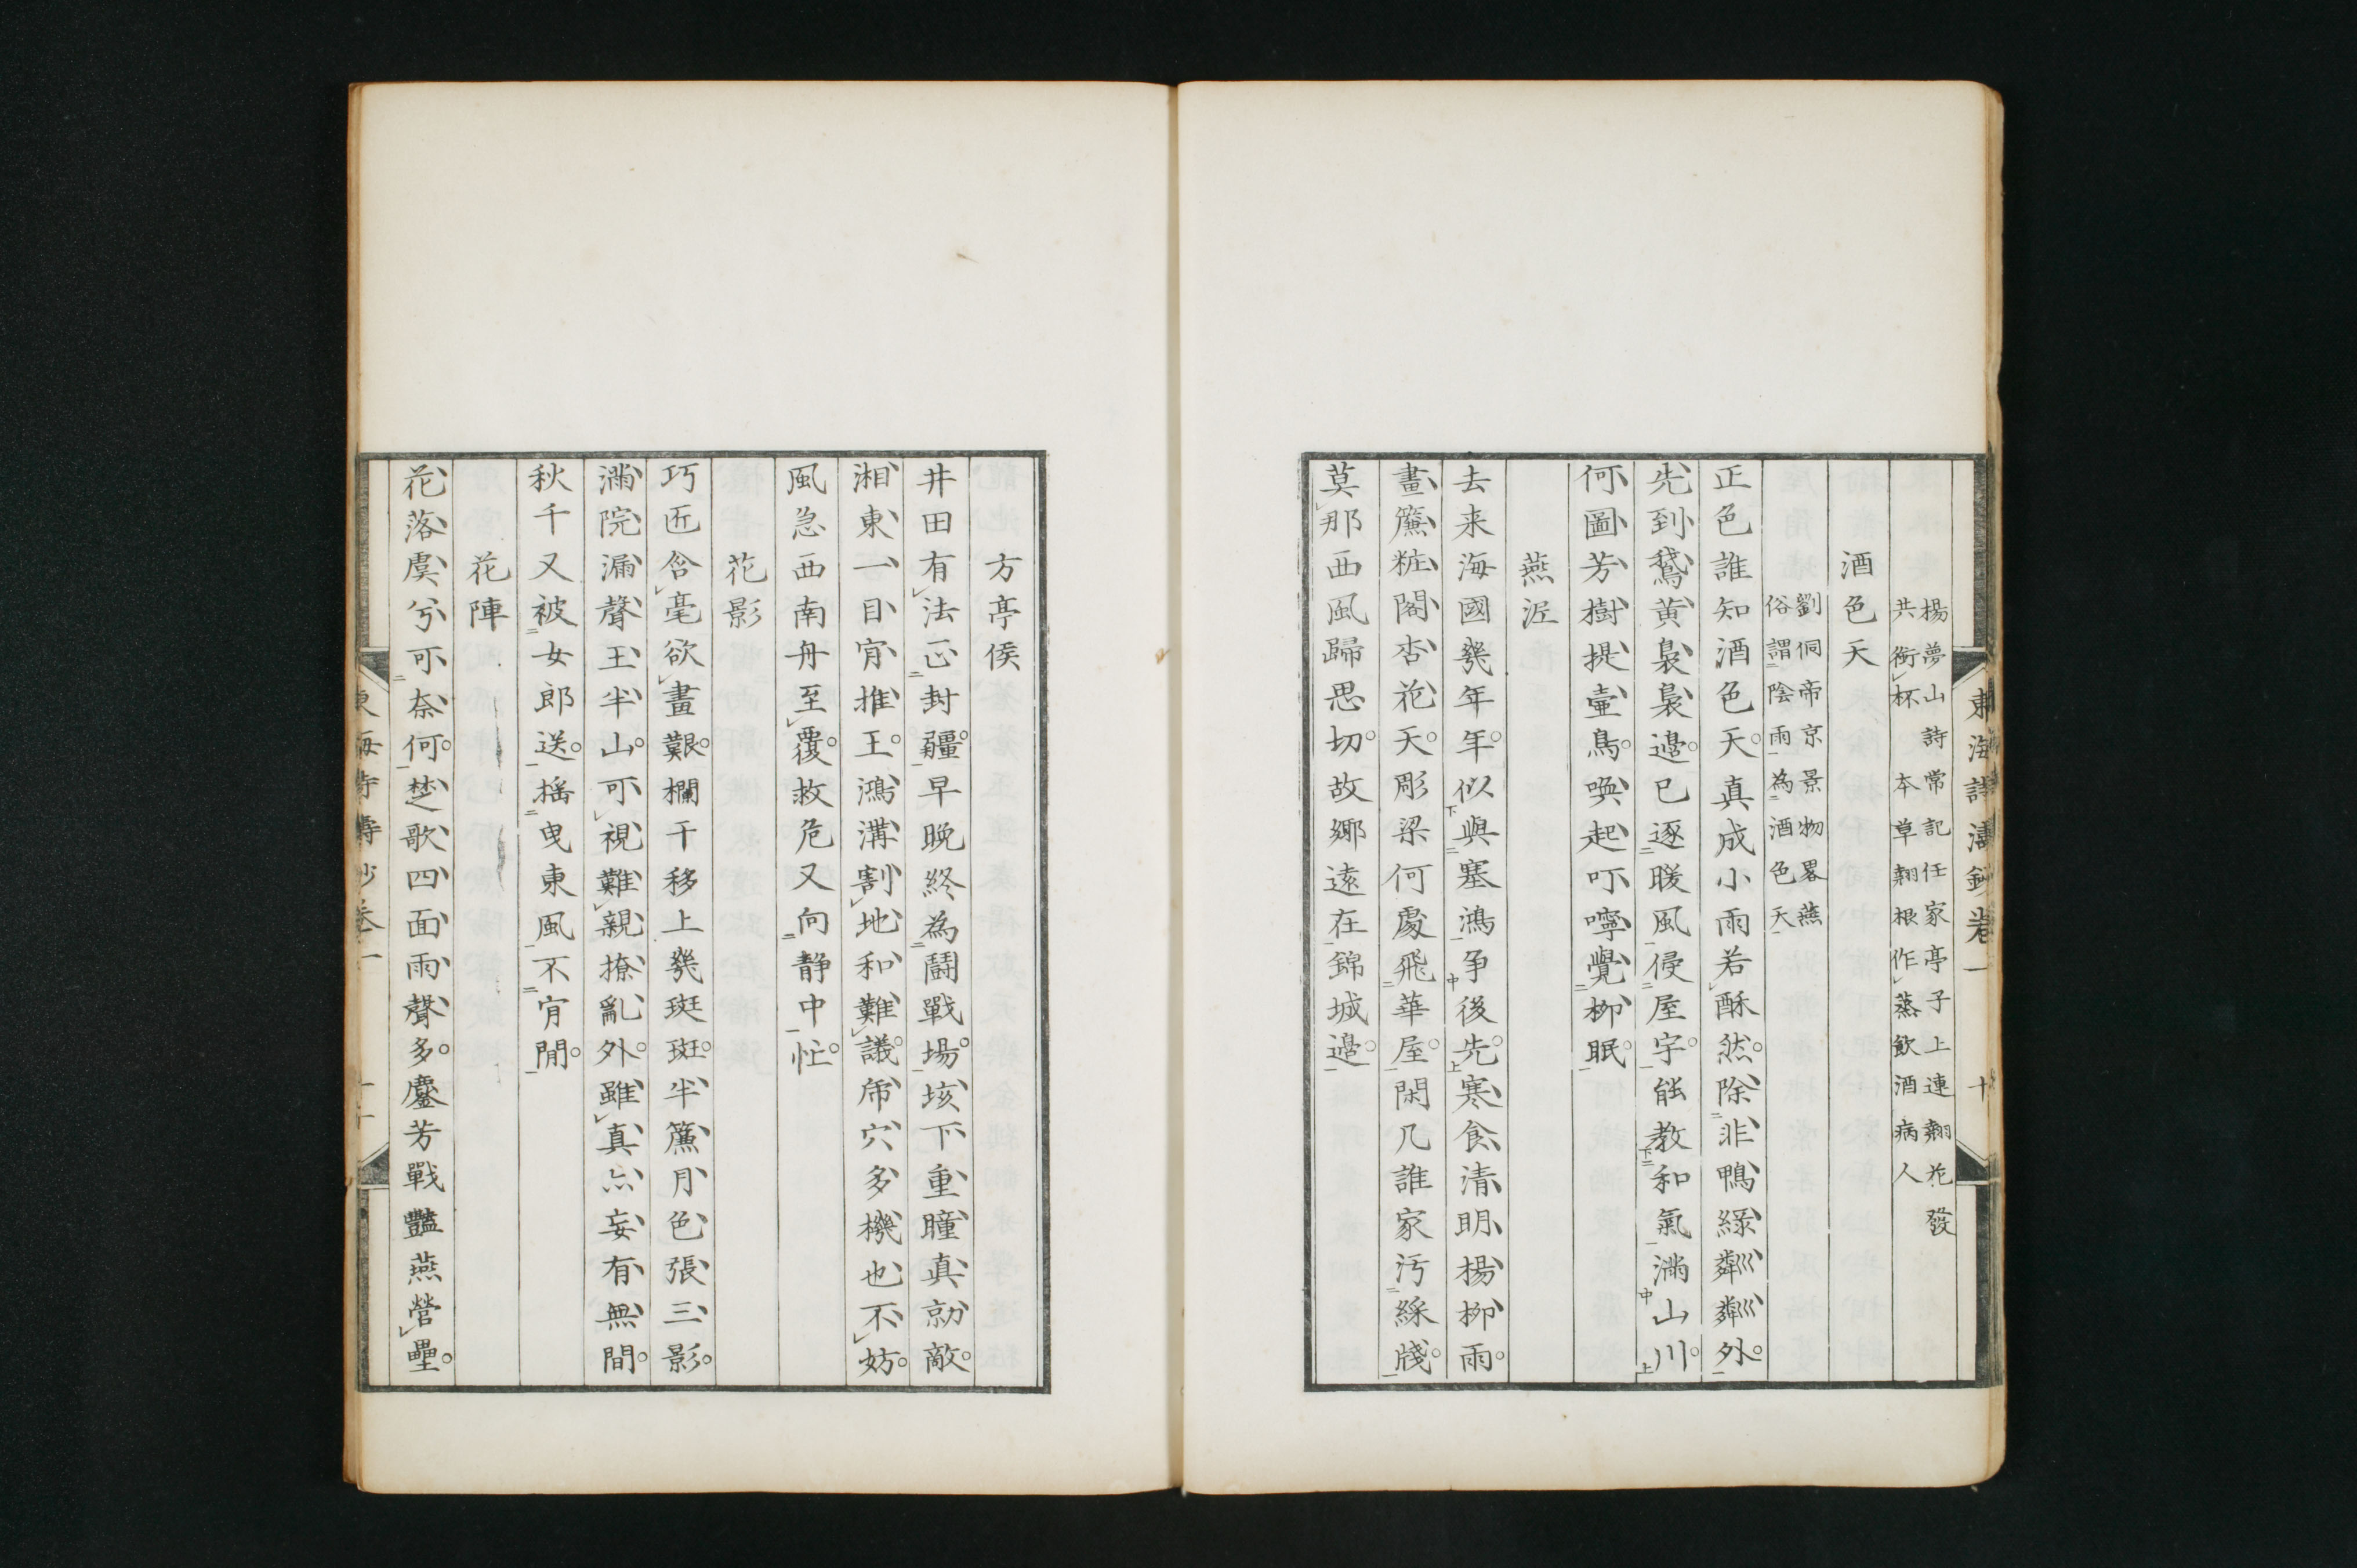 東海詩濤鈔卷一 十
楊夢山詩常記任家亭子上連翹花發
共銜杯本草翹根作蒸飲酒病人
酒色天
劉侗帝京景物畧燕
俗謂陰雨為酒色天
正色誰知酒色天真成小雨若酥然除非鴨綠粼粼外
先到鵝黃裊裊邊已逐暖風侵屋宇能教和氣滿山川
何圖芳樹提壷鳥喚起叮嚀覺柳眠
燕泥
去来海國幾年年似與塞鴻爭後先寒食清明楊柳雨
畫簾粧閣杏花天彫梁何處飛華屋閑几誰家汚綵牋
莫那西風歸思切故郷遠在錦城邊
方亭侯
井田有法正封疆早晚終為鬪戰場垓下重瞳真勍敵
湘東一目肯推王鴻溝割地和難議席穴多機也不妨
風急西南舟至覆救危又向静中忙
花影
巧匠含毫欲畫艱欄干移上幾斑斑半簾月色張三影
滿院漏聲王半山可視難親撩亂外雖真亦妄有無間
秋千又被女郎送搖曳東風不肯閒
花陣
花落虞兮可奈何楚歌四面雨聲多鏖芳戰豔燕營壘